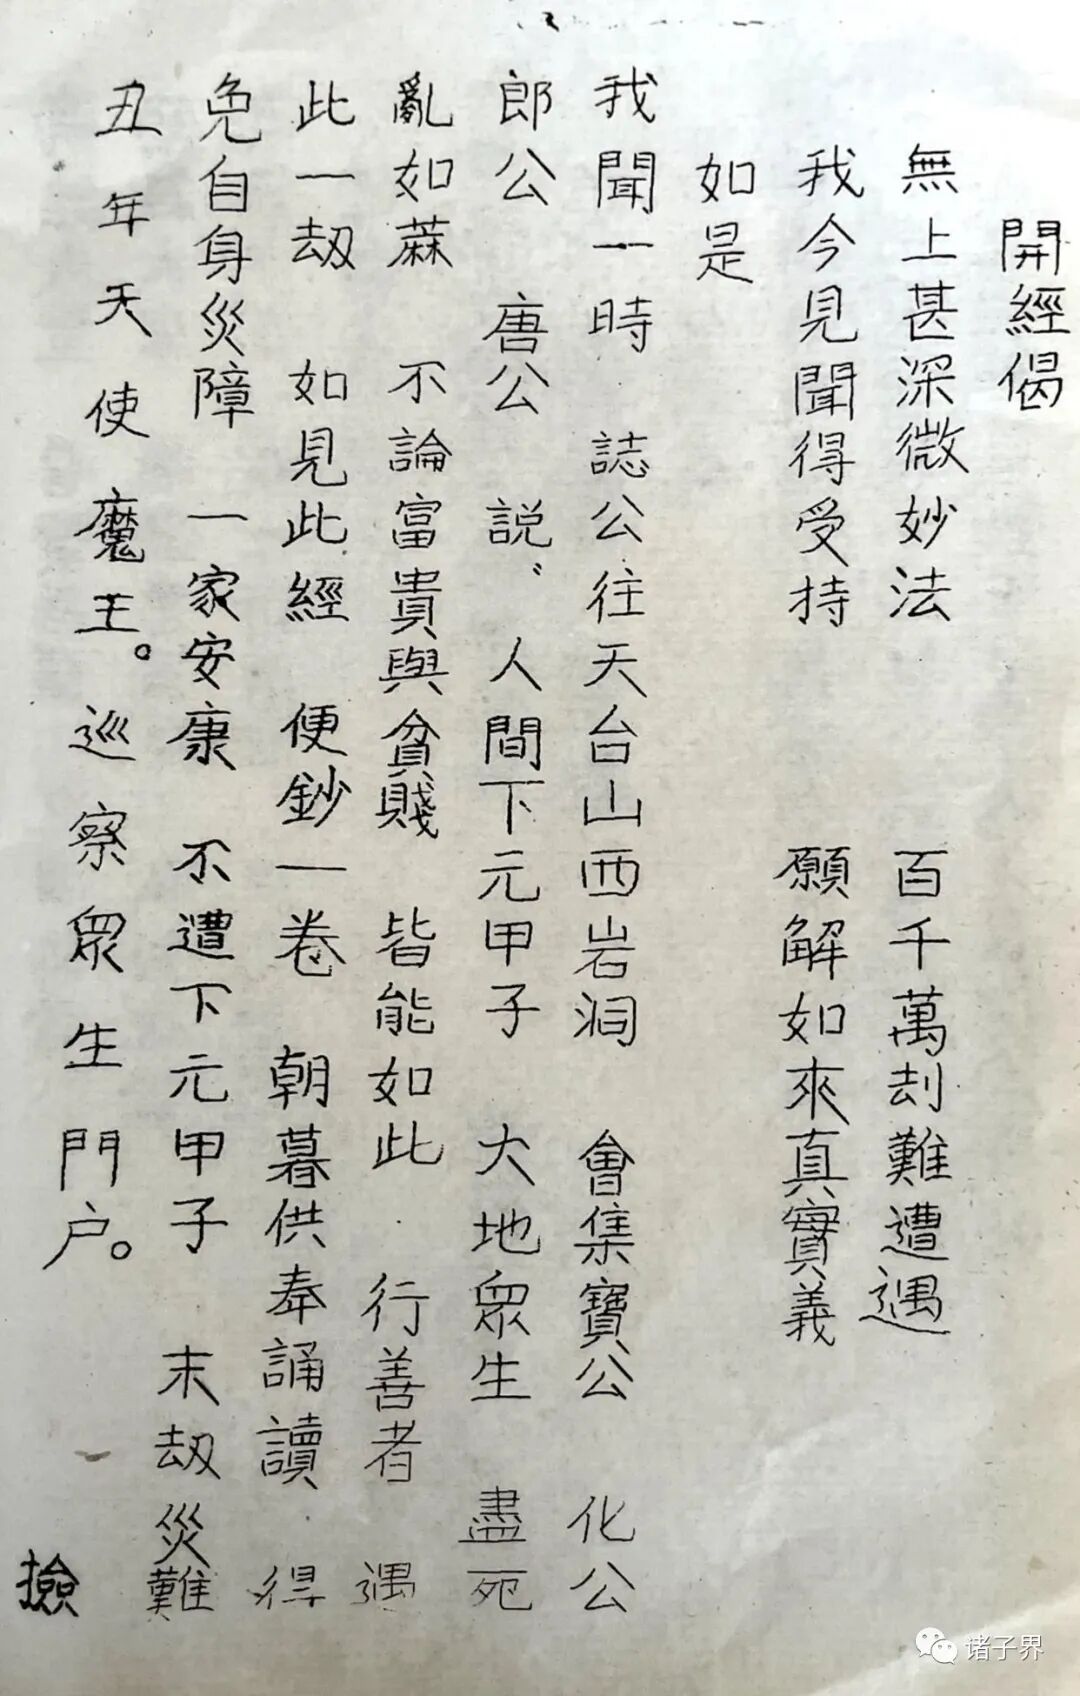 開經偈
無上甚深微妙法 百千萬刦難遭遇
我今見聞得受持 願解如來真實義
如是
我聞一時 誌公往天台山西岩洞 會集寶公 化公
郎公 唐公 説、人間下元甲子 大地眾生 盡死
亂如蔴 不論富貴與貧賤 皆能如此 行善者 遇
此一刼 如見此經 便鈔一卷 朝暮供奉誦讀 得
免自身災障 一家安康 不遭下元甲子 末刼災難
丑年天使魔王。巡察眾生門户。
撿
诸子界